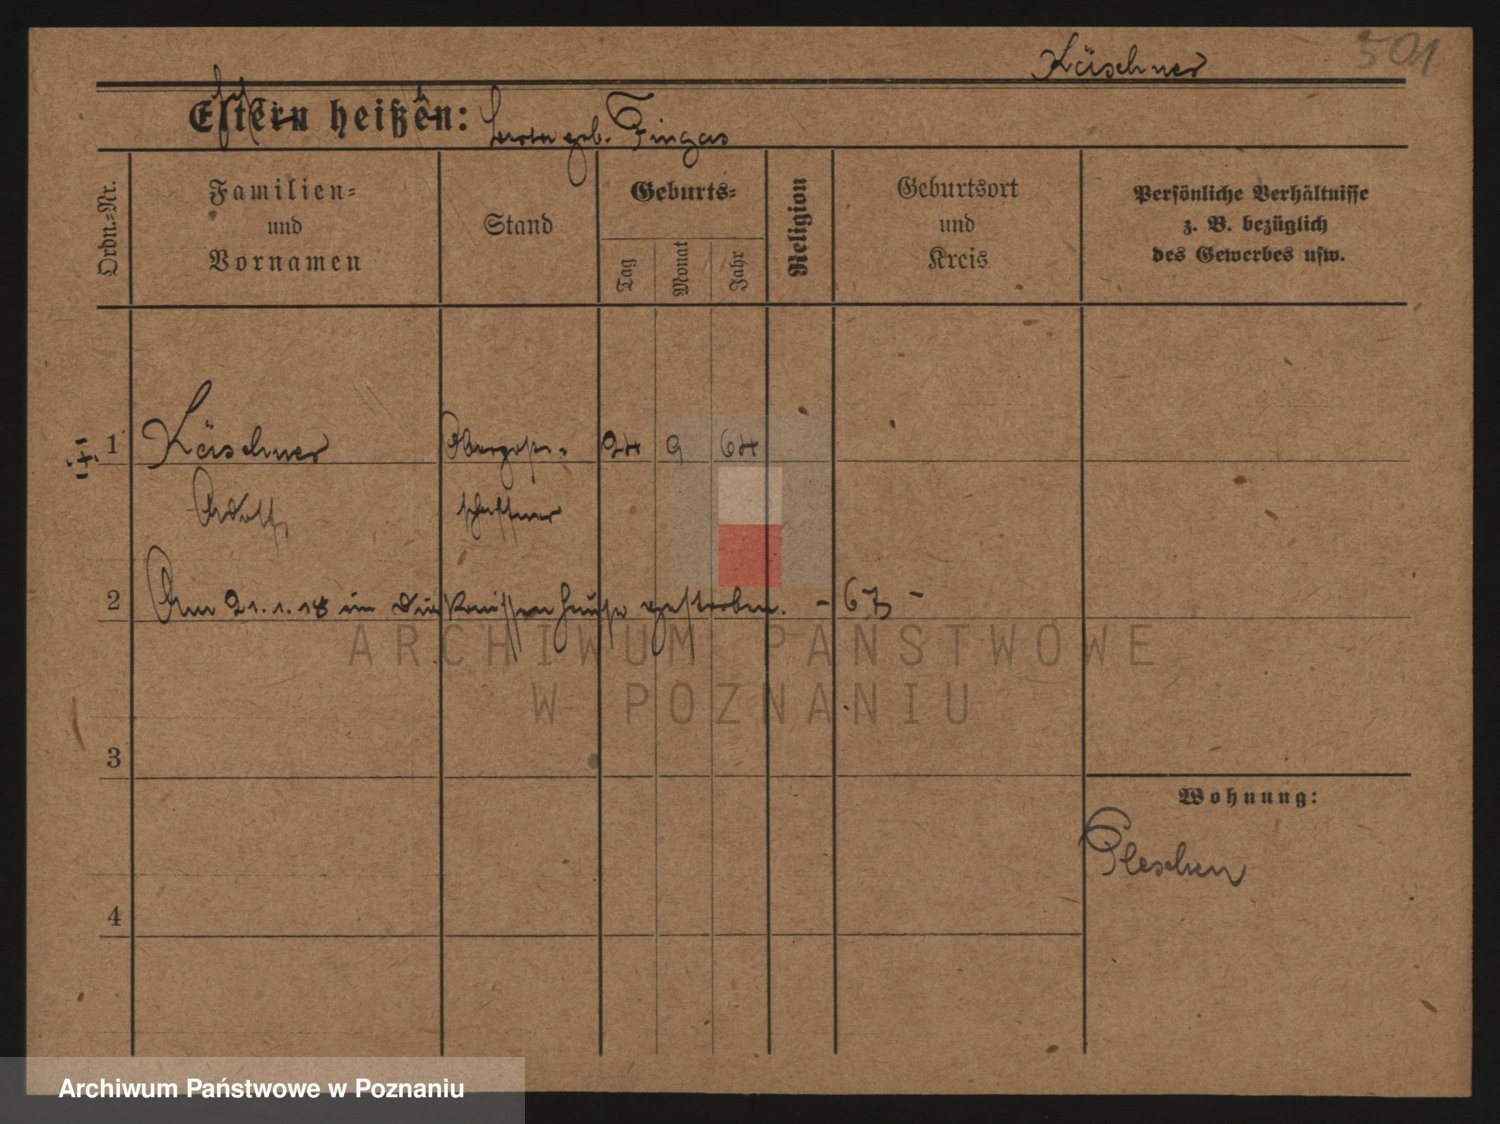 Käschner 501
Eltern heißen: geb. Fingas
Ordn.-Nr.
Familien-
und
Vornamen
Stand
Geburts-
Tag
Monat
Jahr
Religion
Geburtsort
und
Kreis
Persönliche Verhältnisse
z. B. bezüglich
des Gewerbes usw.
1 Käschner 24 9 64
Adolf schaffner
2 Am 21.1.18 im Diakonissenhause gestorben. - 67 -
3
4
Wohnung:
Pleschen
ARCHIWUM PAŃSTWOWE
W POZNANIU
Archiwum Państwowe w Poznaniu